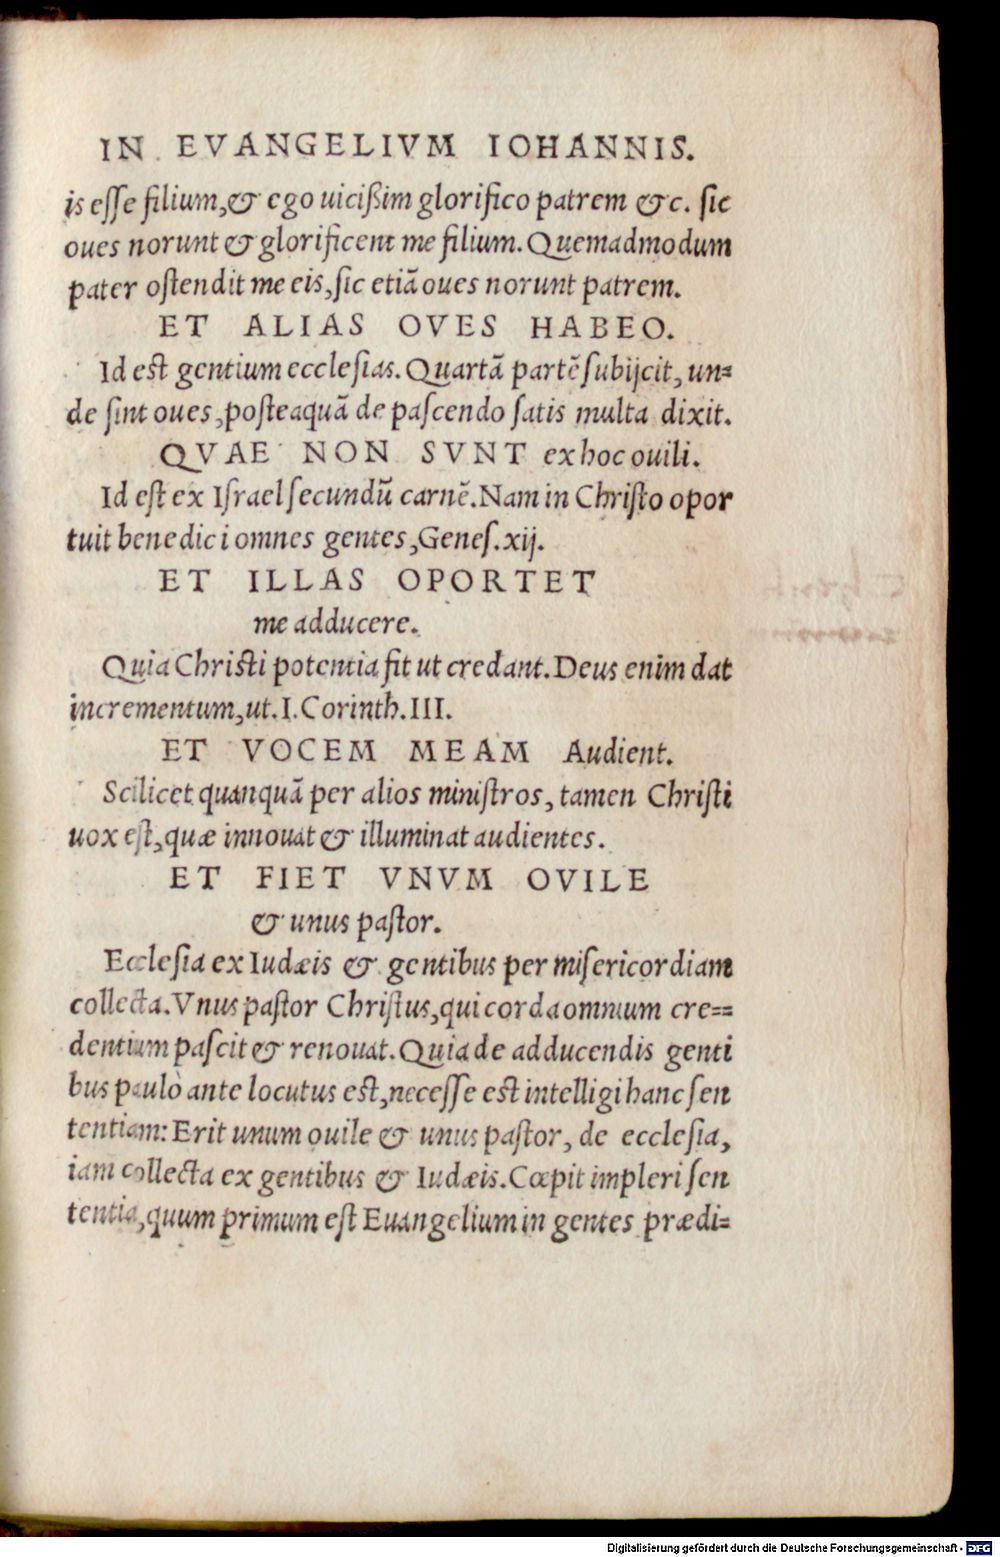 IN EVANGELIVM IOHANNIS.
is esse filium,& ego uicißim glorifico patrem &c. sic
oues norunt & glorificent me filium. Quemadmodum
pater ostendit me eis, sic etiā oues norunt patrem.
ET ALIAS OVES HABEO.
Id est gentium ecclesias. Quartā partē subijcit, un=
de sint oues, posteaquā de pascendo satis multa dixit.
QVAE NON SVNT ex hoc ouili.
Id est ex Israel secundū carnē. Nam in Christo opor
tuit benedici omnes gentes, Genes. xij.
ET ILLAS OPORTET
me adducere.
Quia Christi potentia fit ut credant. Deus enim dat
incrementum, ut. I. Corinth. III.
ET VOCEM MEAM Audient.
Scilicet quanquā per alios ministros, tamen Christi
uox est, quæ innouat & illuminat audientes.
ET FIET VNVM OVILE
& unus pastor.
Ecclesia ex Iudæis & gentibus per misericordiam
collecta. Vnus pastor Christus, qui corda omnium cre==
dentium pascit & renouat. Quia de adducendis genti
bus paulò ante locutus est, necesse est intelligi hanc sen
tentiam: Erit unum ouile & unus pastor, de ecclesia,
iam collecta ex gentibus & Iudæis. Cœpit impleri sen
tentia, quum primum est Euangelium in gentes prædi=
Digitalisierung gefördert durch die Deutsche Forschungsgemeinschaft - DFG